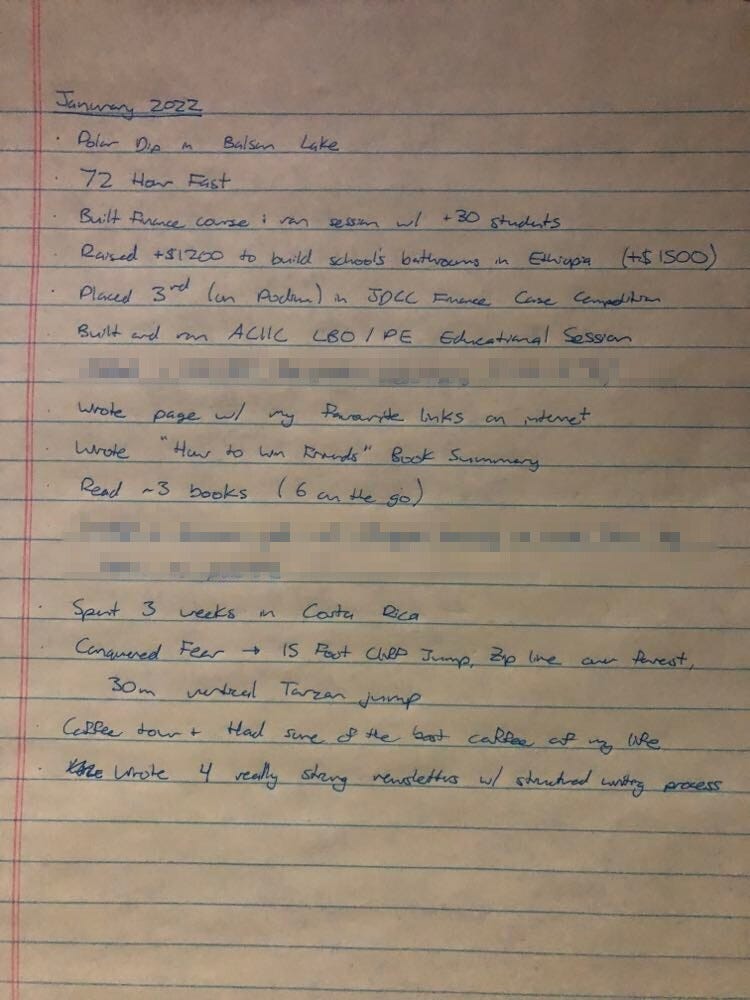 January 2022
· Polar Dip in Balsam Lake
· 72 Hour Fast
· Built finance course & ran session w/ +30 students
· Raised +$1200 to build school's bathrooms in Ethiopia (+$1500)
· Placed 3rd (on Podium) in JDCC Finance Case Competition
· Built and ran ACIIC LBO / PE Educational Session
· Wrote page w/ my favourite links on internet
· Wrote "How to Win Friends" Book Summary
· Read ~3 books (6 on the go)
· Spent 3 weeks in Costa Rica
· Conquered Fear → 15 Foot Cliff Jump, Zip line over forest,
30m vertical Tarzan jump
· Coffee tour + Had some of the best coffee of my life
· Wrote 4 really strong newsletters w/ structured writing process